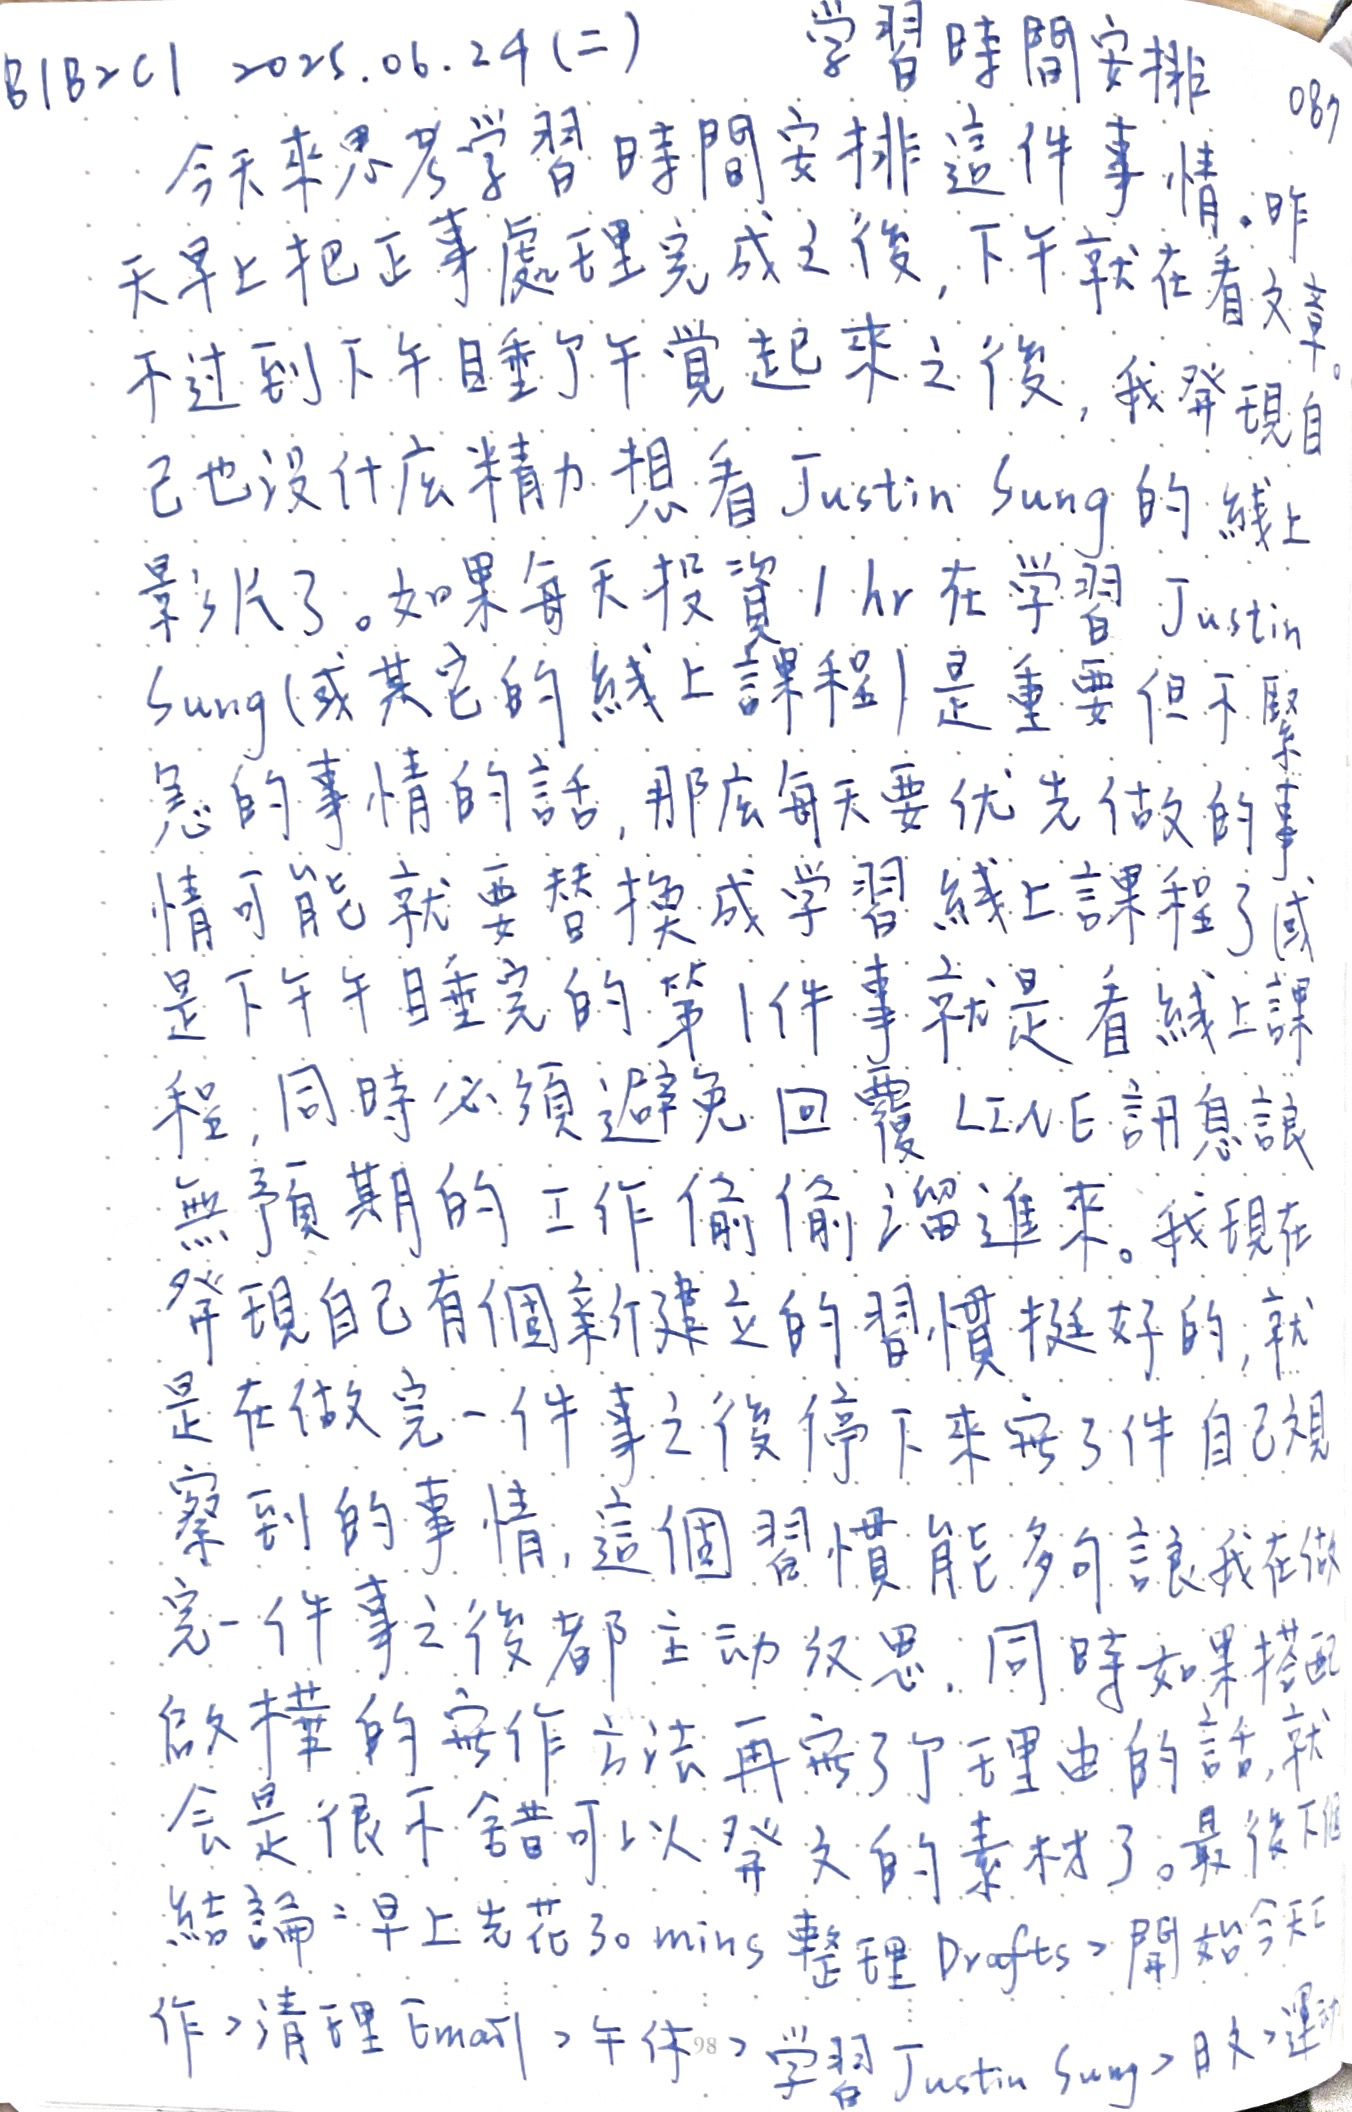 B1B2C1 2025.06.24(二) 学習時間安排 087
今天來思考学習時間安排這件事情。昨
天早上把正事處理完成之後,下午就在看文章。
不过到下午睡了午覚起來之後,我発現自
己也没什広精力想看Justin Sung的綫上
影片了。如果每天投資1hr在学習Justin
Sung(或其它的綫上課程)是重要但不緊
急的事情的話,那広每天要优先做的事
情可能就要替換成学習綫上課程了(或
是下午午睡完的第1件事就是看綫上課
程,同時必須避免回覆LINE訊息讓
無預期的工作偷偷溜進來。我現在
発現自己有個新建立的習慣挺好的,就
是在做完一件事之後停下來寫3件自己观
察到的事情,這個習慣能够讓我在做
完一件事之後都主动反思.同時如果搭配
啟樺的寫作方法再寫3个理由的話,就
会是很不錯可以発文的素材了。最後下個
結論:早上先花30mins整理Drafts>開始今天工
作>清理Email>午休>学習Justin Sung>日文>運动
98